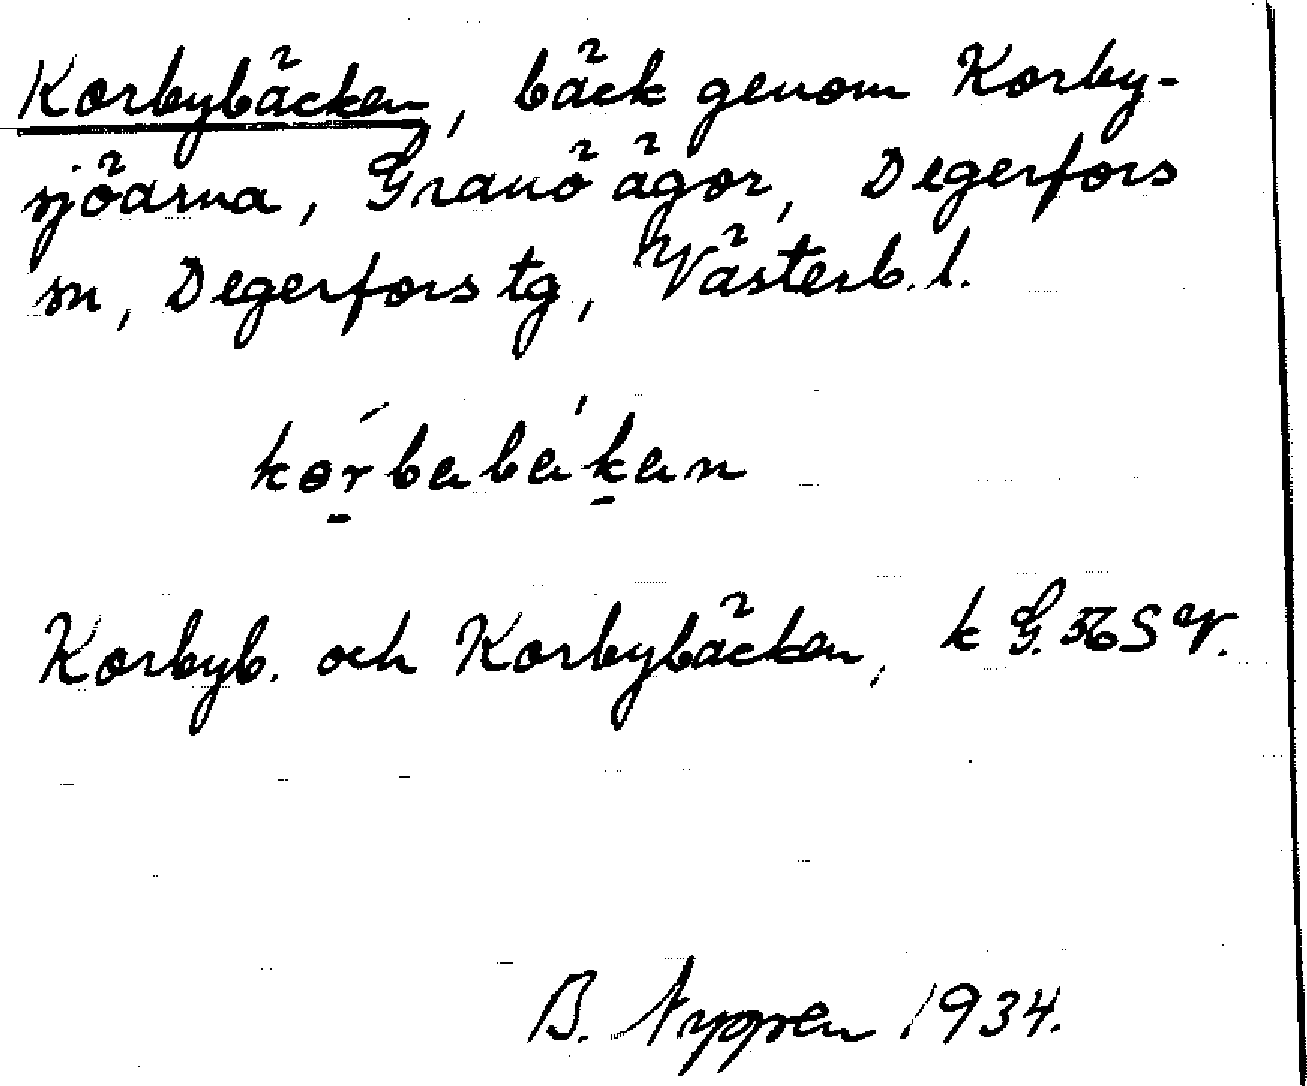 Korbybäcken, bäck genom Korby-
sjöarna, Granö ägor, Degerfors
sn, Degerfors tg, Västerb. l.
kơrbabekan
Korbyb. och Korbybäcken, k G. 56 SV.
B. 1934.